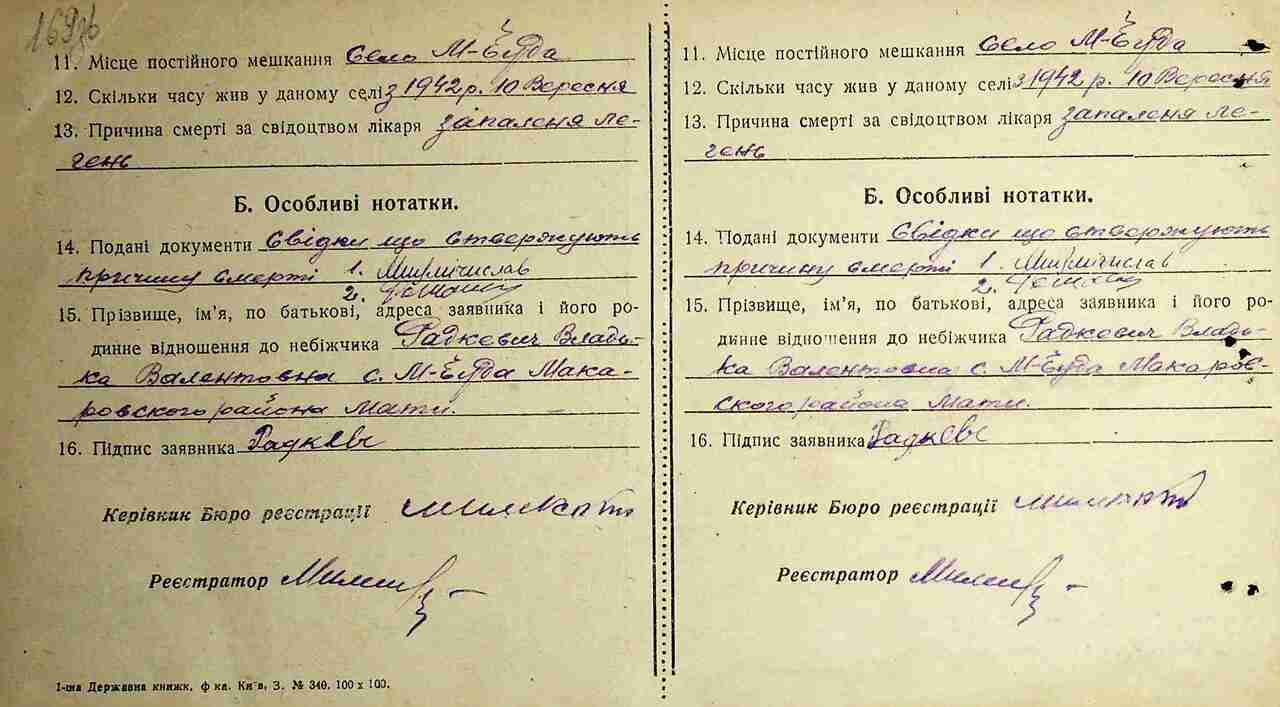 169 зв
11. Місце постійного мешкання село М-Буда
12. Скільки часу жив у даному селі з 1942 р. 10 Вересня
13. Причина смерті за свідоцтвом лікаря запаленя ле-
гень
Б. Особливі нотатки.
14. Подані документи Свідки що ствержують
причину смерті 1.
2.
15. Прізвище, ім'я, по батькові, адреса заявника і його ро-
динне відношення до небіжчика Радкевич Влады-
ка Валентовна с. М-Буда Мака-
ровского района Мати.
16. Підпис заявника Радкевс
Керівник Бюро реєстрації
Реєстратор
1-ша Державна книжк. ф-ка. Київ, З. № 340. 100 х 100.
11. Місце постійного мешкання село М-Буда
12. Скільки часу жив у даному селі з 1942 р. 10 Вересня
13. Причина смерті за свідоцтвом лікаря запаленя ле-
гень
Б. Особливі нотатки.
14. Подані документи Свідки що ствержують
причину смерті 1.
2.
15. Прізвище, ім'я, по батькові, адреса заявника і його ро-
динне відношення до небіжчика Радкевич Влады-
ка Валентовна с. М-Буда Макаров-
ского района Мати.
16. Підпис заявника Радкевс
Керівник Бюро реєстрації
Реєстратор